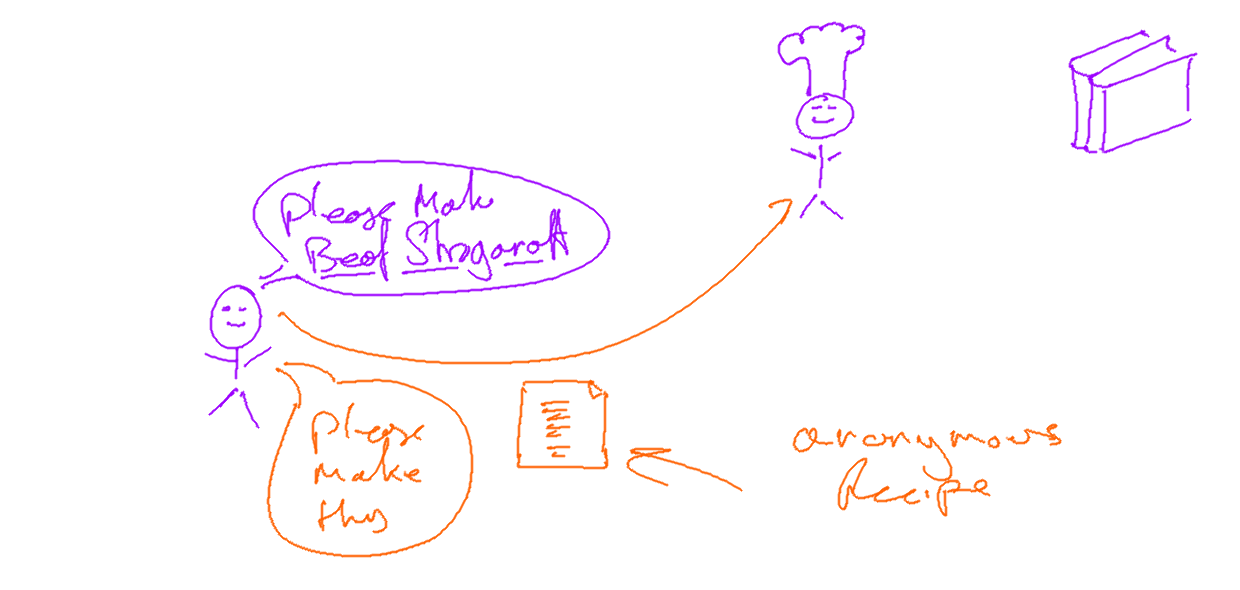 Please Make
Beef Stroganoff
Please
Make
this
anonymous
Recipe